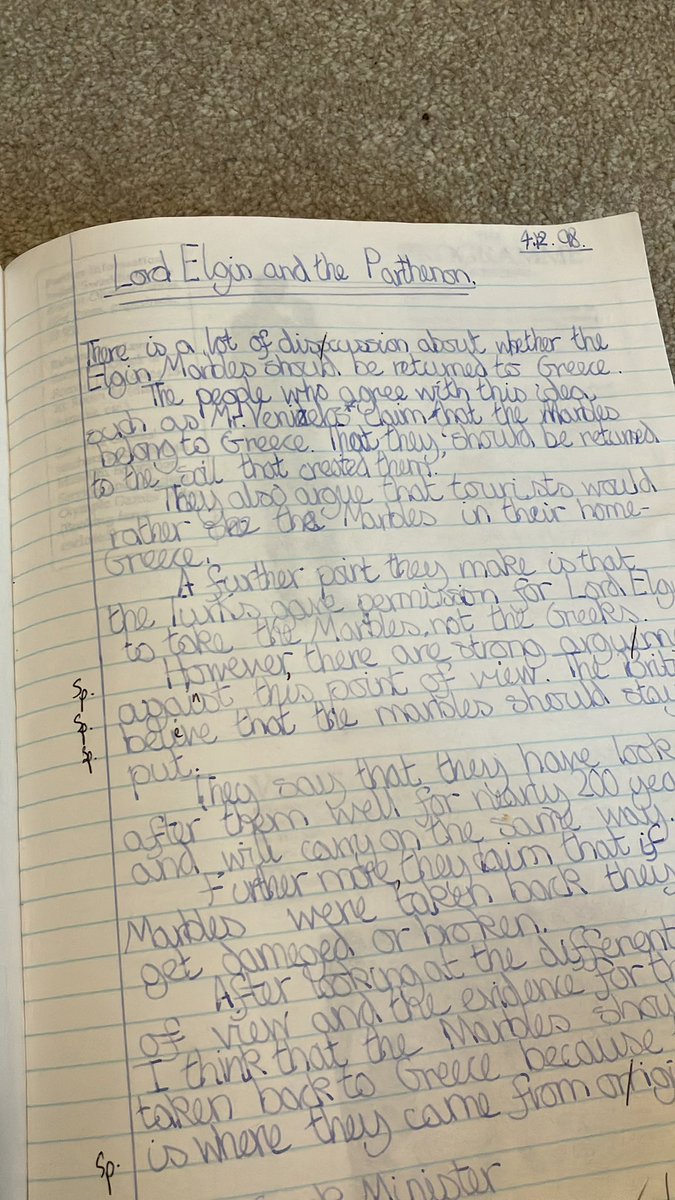 4.12.98.
Lord Elgin and the Parthenon.
There is a lot of discussion about whether the
Elgin Marbles should be returned to Greece.
The people who agree with this idea,
such as Mr. Venizelos* claim that the marbles
belong to Greece. That they, should be returned
to the soil that created them".
They also argue that tourists would
rather see the Marbles in their home-
Greece.
A further point they make is that
the Turks gave permission for Lord Elg
to take the Marbles, not the Greeks.
However, there are strong argu/me
Sp. against this point of view. The Brit
Sp. believe that the marbles should stay
Sp. put.
They say that they have look
after them well for nearly 200 yea
and will carry on the same way.
Further more, they claim that if
Marbles were taken back they
get dameged or broken.
After looking at the different
of view and the evidence for th
I think that the Marbles shou
taken back to Greece because
is where they came from or/igi
Sp.
Minister